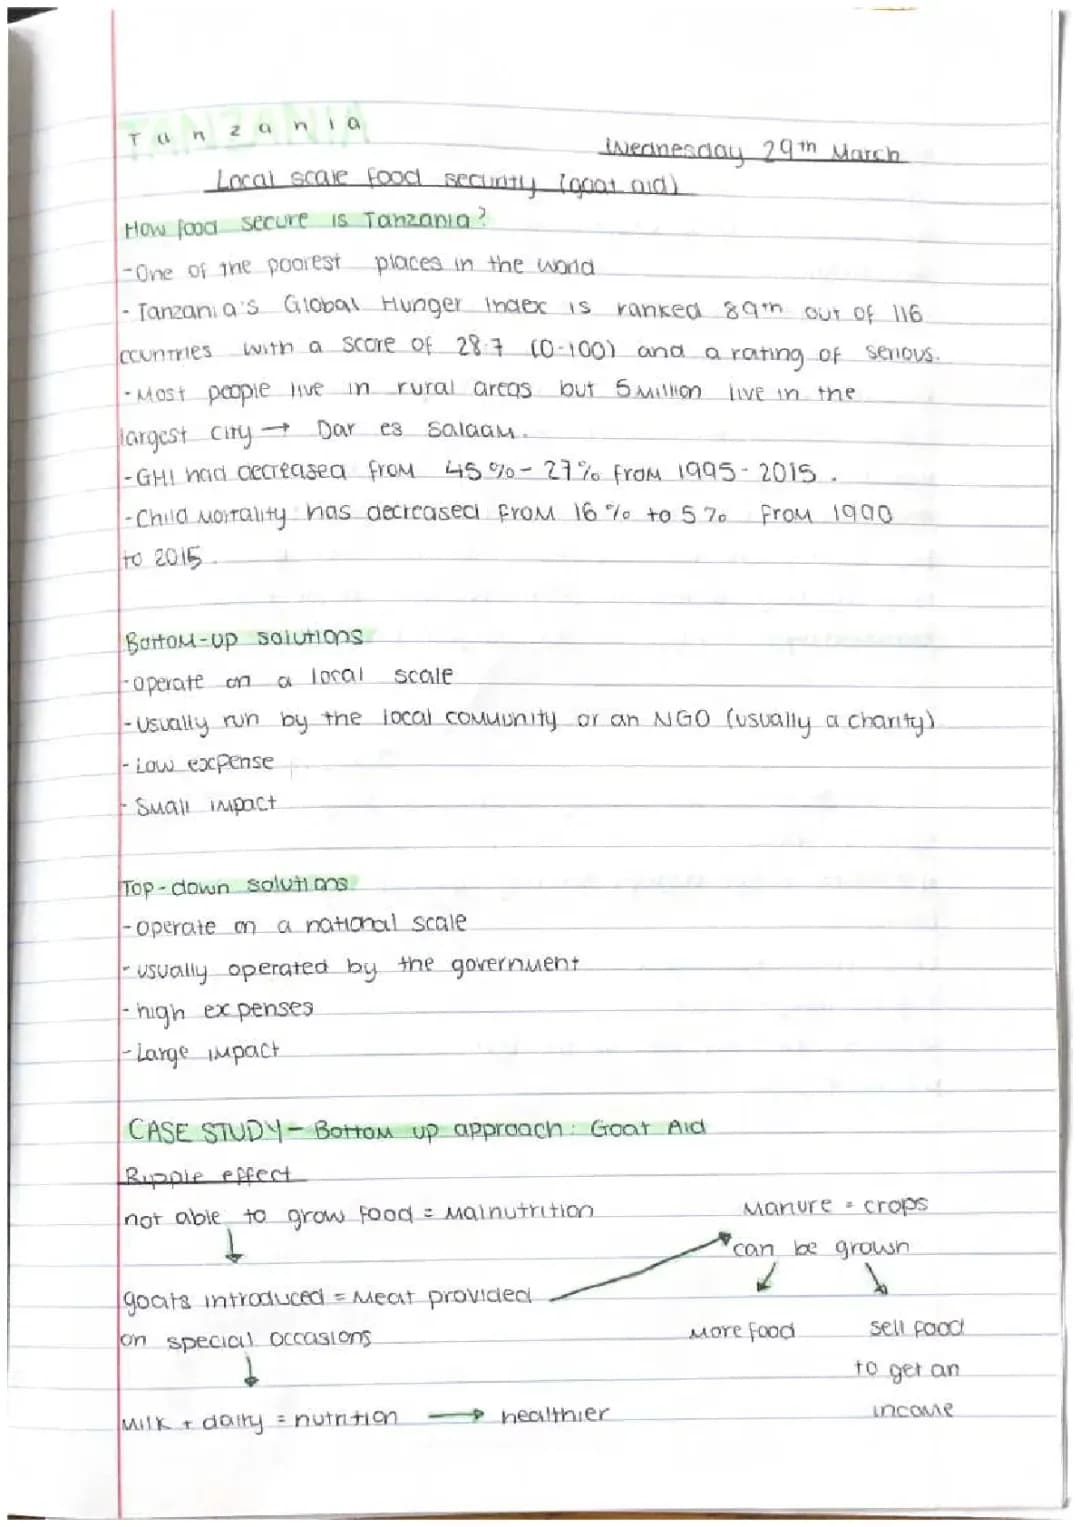 Tanzania
Wednesday 29th March
Local scale food security (goat aid)
How food secure is Tanzania?
-One of the poorest places in the world
- Tanzania's Global Hunger Index is ranked 89th out of 116
countries with a score of 28.7 (0-100) and a rating of serious.
-Most people live in rural areas but 5 million live in the
largest city → Dar es Salaam.
-GHI had decreased from 45%-27% from 1995-2015.
-Child mortality has decreased from 16% to 5% from 1990
to 2015.
Bottom-up solutions
-operate on a local scale
-Usually run by the local community or an NGO (usually a charity)
- Low expense
- Small impact
Top-down solutions
-operate on a national scale
-usually operated by the government
-high expenses
-Large impact
CASE STUDY- Bottom up approach: Goat Aid
Ripple effect
not able to grow food = Malnutrition
Manure = crops
can be grown
goats introduced = Meat provided
on special occasions
More food
sell food
to get an
income
Milk + dairy = nutrition → healthier